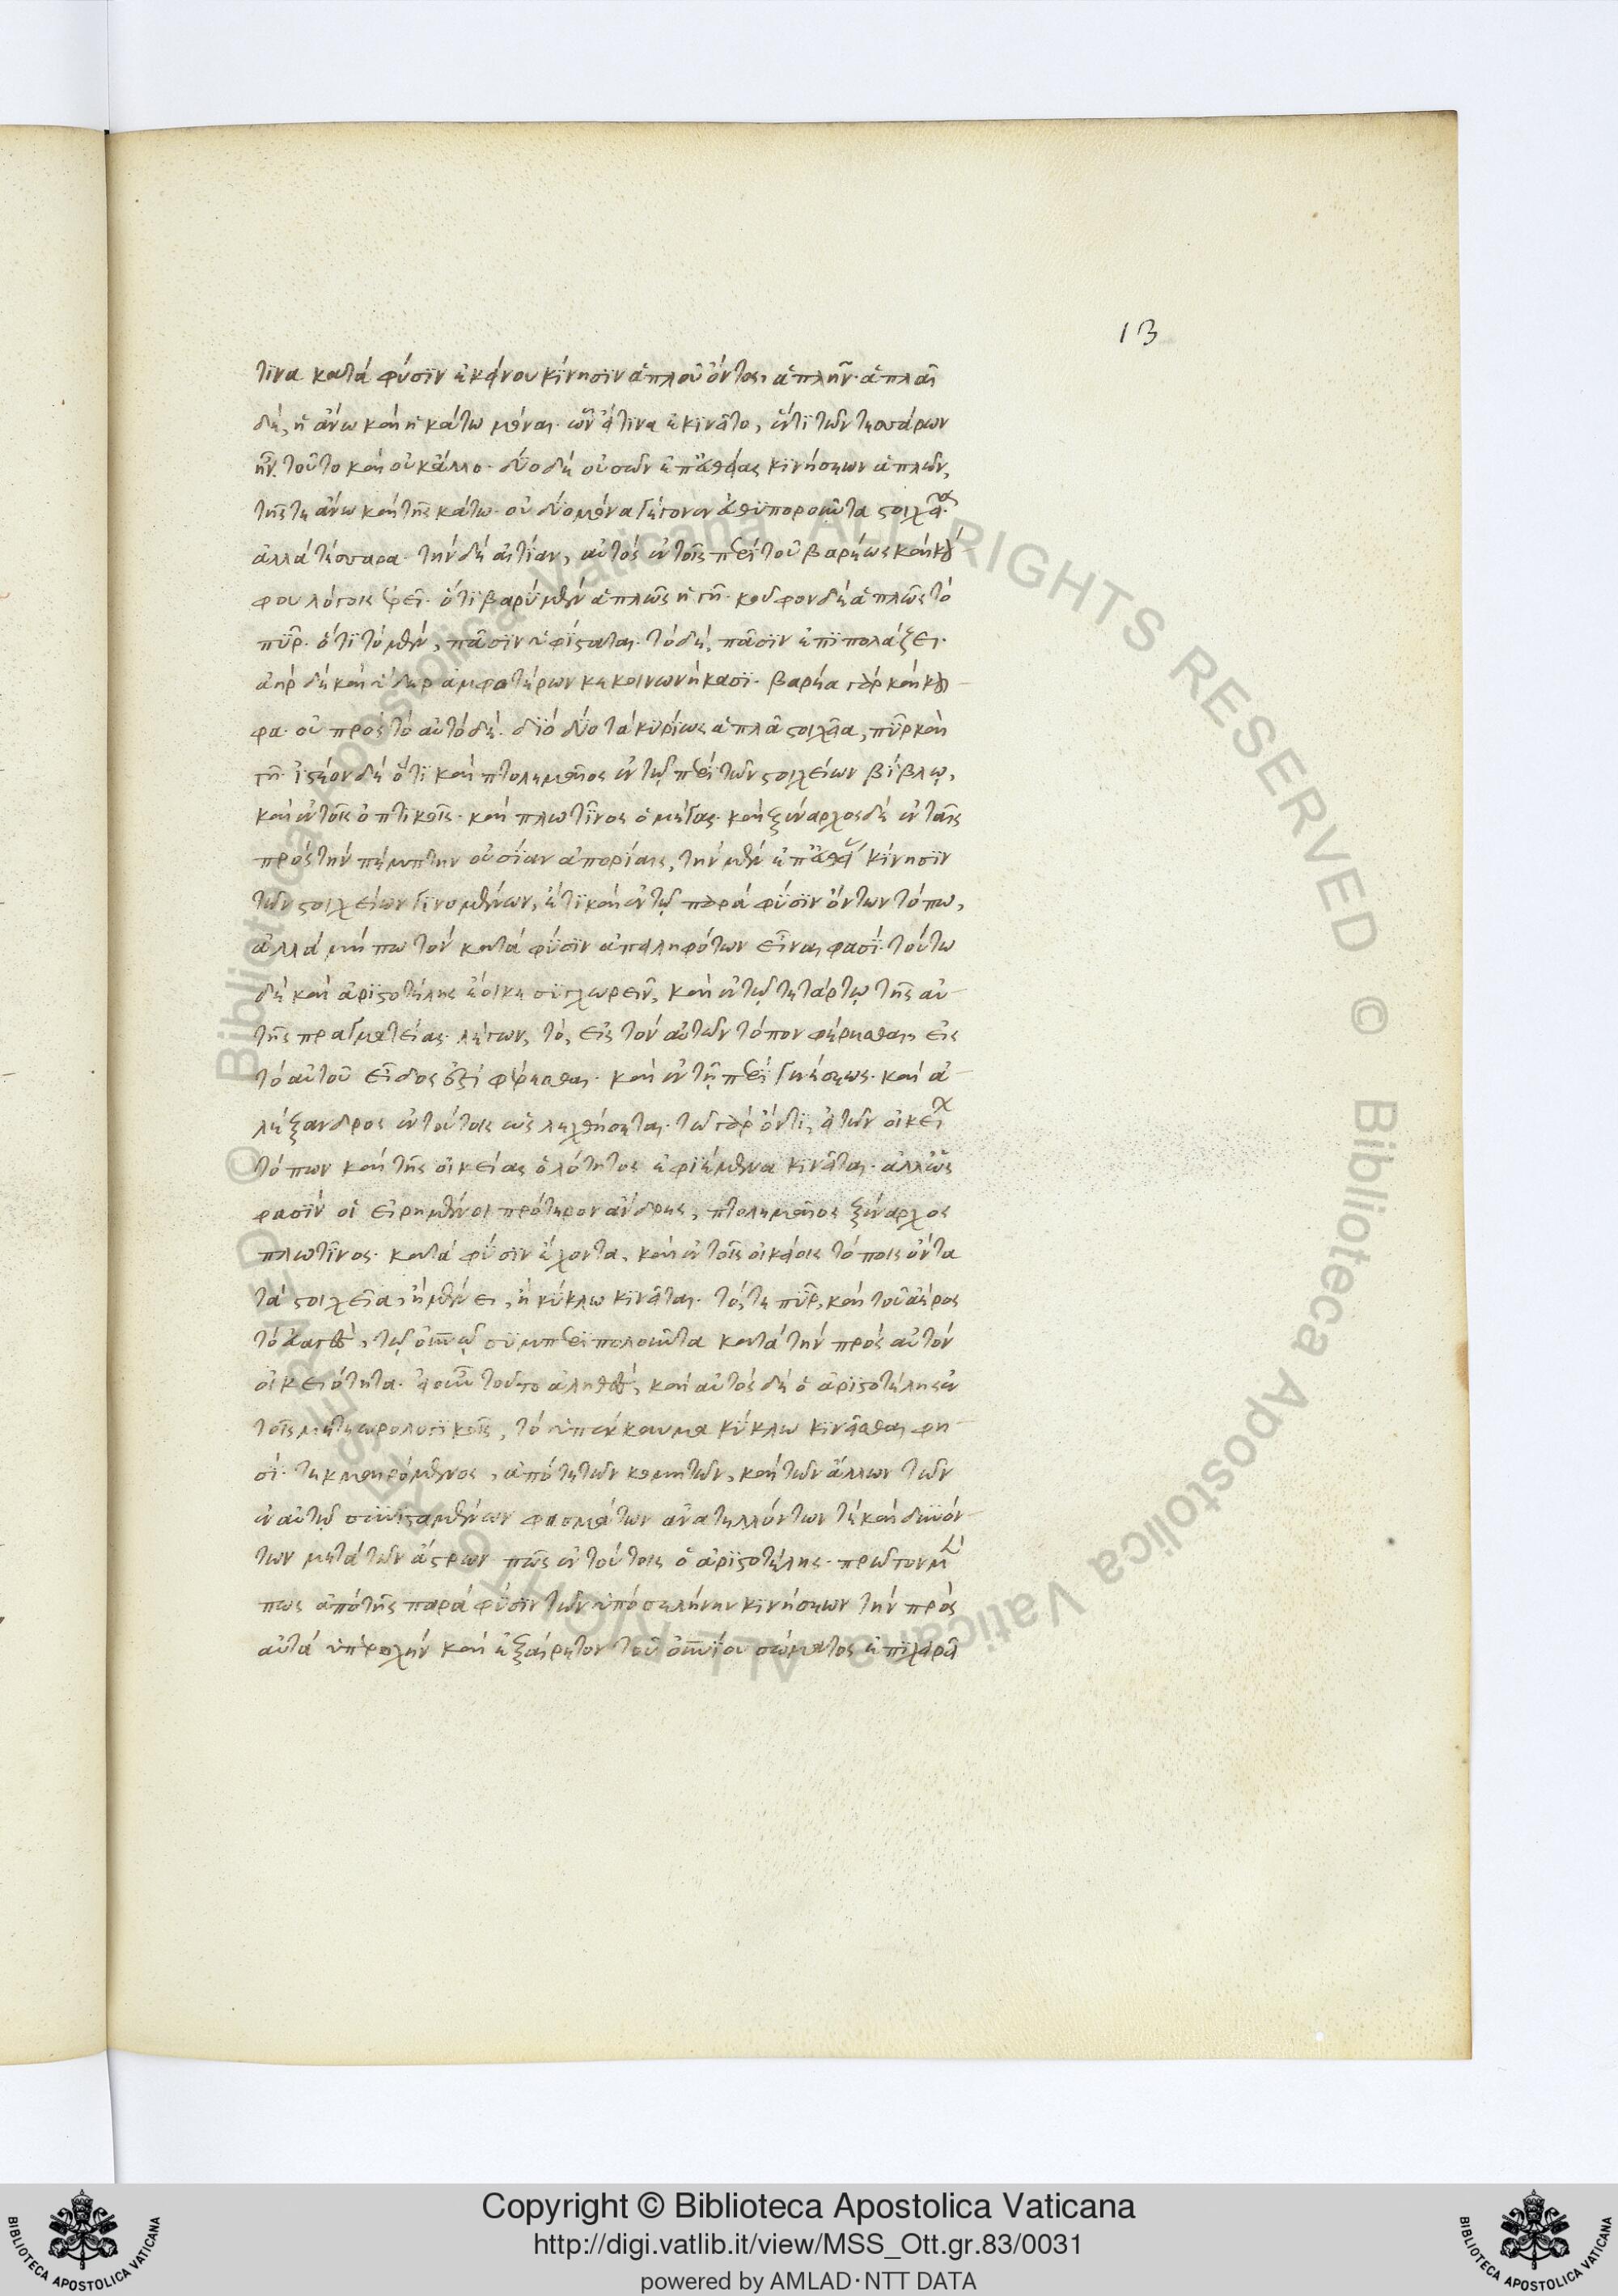 13
τινα κατά φύσϊν ἐκείνου κίνησιν ἁπλοῦ ὄντος, ἁπλῆν. ἁπλαῖ
δέ, ἡ ἄνω καὶ ἡ κάτω μόναι. ὧν ἥτινα ἐκινεῖτο, ἕν τι τῶν τεσσάρων
ἦν. τοῦτο καὶ οὐκ ἄλλο. δύο δὲ οὐσῶν ἐπ' εὐθείας κινήσεων ἁπλῶν,
τῆς τε ἄνω καὶ τῆς κάτω. οὐ δύο μόνα γέγονεν εὐθυποροῦντα στοιχεῖα.
ἀλλὰ τέσσαρα. τὴν δὲ αἰτίαν, αὐτὸς ἐν τοῖς περὶ τοῦ βαρέως καὶ κού
φου λόγοις ἐρεῖ. ὅτι βαρὺ μὲν ἁπλῶς ἡ γῆ. κοῦφον δὲ ἁπλῶς τὸ
πῦρ. ὅτι τὸ μὲν, πᾶσιν ὑφίσταται. τὸ δὲ, πᾶσιν ἐπιπολάζει.
ἀὴρ δὲ καὶ ὕδωρ ἀμφοτέρων κεκοινωνήκασι. βαρέα γὰρ καὶ κοῦ
φα. οὐ πρὸς τὸ αὐτὸ δέ. διὸ δύο τὰ κυρίως ἁπλᾶ στοιχεῖα, πῦρ καὶ
γῆ. ἰστέον δὲ ὅτι καὶ πτολεμαῖος ἐν τῷ περὶ τῶν στοιχείων βίβλῳ,
καὶ ἐν τοῖς ὀπτικοῖς. καὶ πλωτῖνος ὁ μέγας. καὶ ξέναρχος δὲ ἐν ταῖς
πρὸς τὴν πέμπτην οὐσίαν ἀπορίαις, τὴν μὲν ἐπ' εὐθείας κίνησιν
τῶν στοιχείων γινομένων, ἔτι καὶ ἐν τῷ παρὰ φύσιν ὄντων τόπω,
ἀλλὰ μήπω τὸν κατὰ φύσιν ἀπειληφότων εἶναι φασί. τούτω
δὲ καὶ ἀριστοτέλης ἔοικε συγχωρεῖν, καὶ ἐν τῷ τετάρτῳ τῆς αὐ
τῆς πραγματείας. λέγων, τὸ, εἰς τὸν αὐτῶν τόπον φέρεσθαι, εἰς
τὸ αὐτοῦ εἶδος ἐστὶ φέρεσθαι. καὶ ἐν τῇ περὶ γενέσεως. καὶ ἀ
λέξανδρος ἐν τούτοις ὡς λεχθήσεται. τῶ γὰρ ὄντι, εἰ τῶν οἰκείων
τόπων καὶ τῆς οἰκείας ὁλότητος ἐφιέμενα κινεῖται. ἀλλ' ὥς
φασϊν οἱ εἰρημένοι πρότερον ἄνδρες, πτολεμαῖος ξέναρχος
πλωτῖνος. κατὰ φύσιν ἔχοντα, καὶ ἐν τοῖς οἰκείοις τόποις ὄντα
τὰ στοιχεῖα, ἢ μένει, ἢ κύκλω κινεῖται. τό, τε πῦρ, καὶ τοῦ ἀέρος
τὸ εὐαγὲς, τῷ οὐρανῷ συμπεριπολοῦντα κατὰ τὴν πρὸς αὐτὸν
οἰκειότητα. εἰ οὖν τοῦτο ἀληθὲς, καὶ αὐτὸς δὲ ὁ ἀριστοτέλης ἐν
τοῖς μετεωρολογικοῖς, τὸ ὑπέκκαυμα κύκλω κινεῖσθαι φη
σί. τεκμαιρόμενος, ἀπό τε τῶν κομητῶν, καὶ τῶν ἄλλων τῶν
ἐν αὐτῷ συνισταμένων φασμάτων ἀνατελλόντων τὲ καὶ δυνόν
των μετὰ τῶν ἄστρων πῶς ἐν τούτοις ὁ ἀριστοτέλης. πρῶτον μέν
πως ἀπὸ τῆς παρὰ φύσιν τῶν ὑπὸ σελήνην κινήσεων τὴν πρὸς
αὐτὰ ὑπεροχὴν καὶ ἐξαίρετον τοῦ οὐρανίου σώματος ἐπιχειρεῖ
Copyright © Biblioteca Apostolica Vaticana
http://digi.vatlib.it/view/MSS_Ott.gr.83/0031
powered by AMLAD·NTT DATA